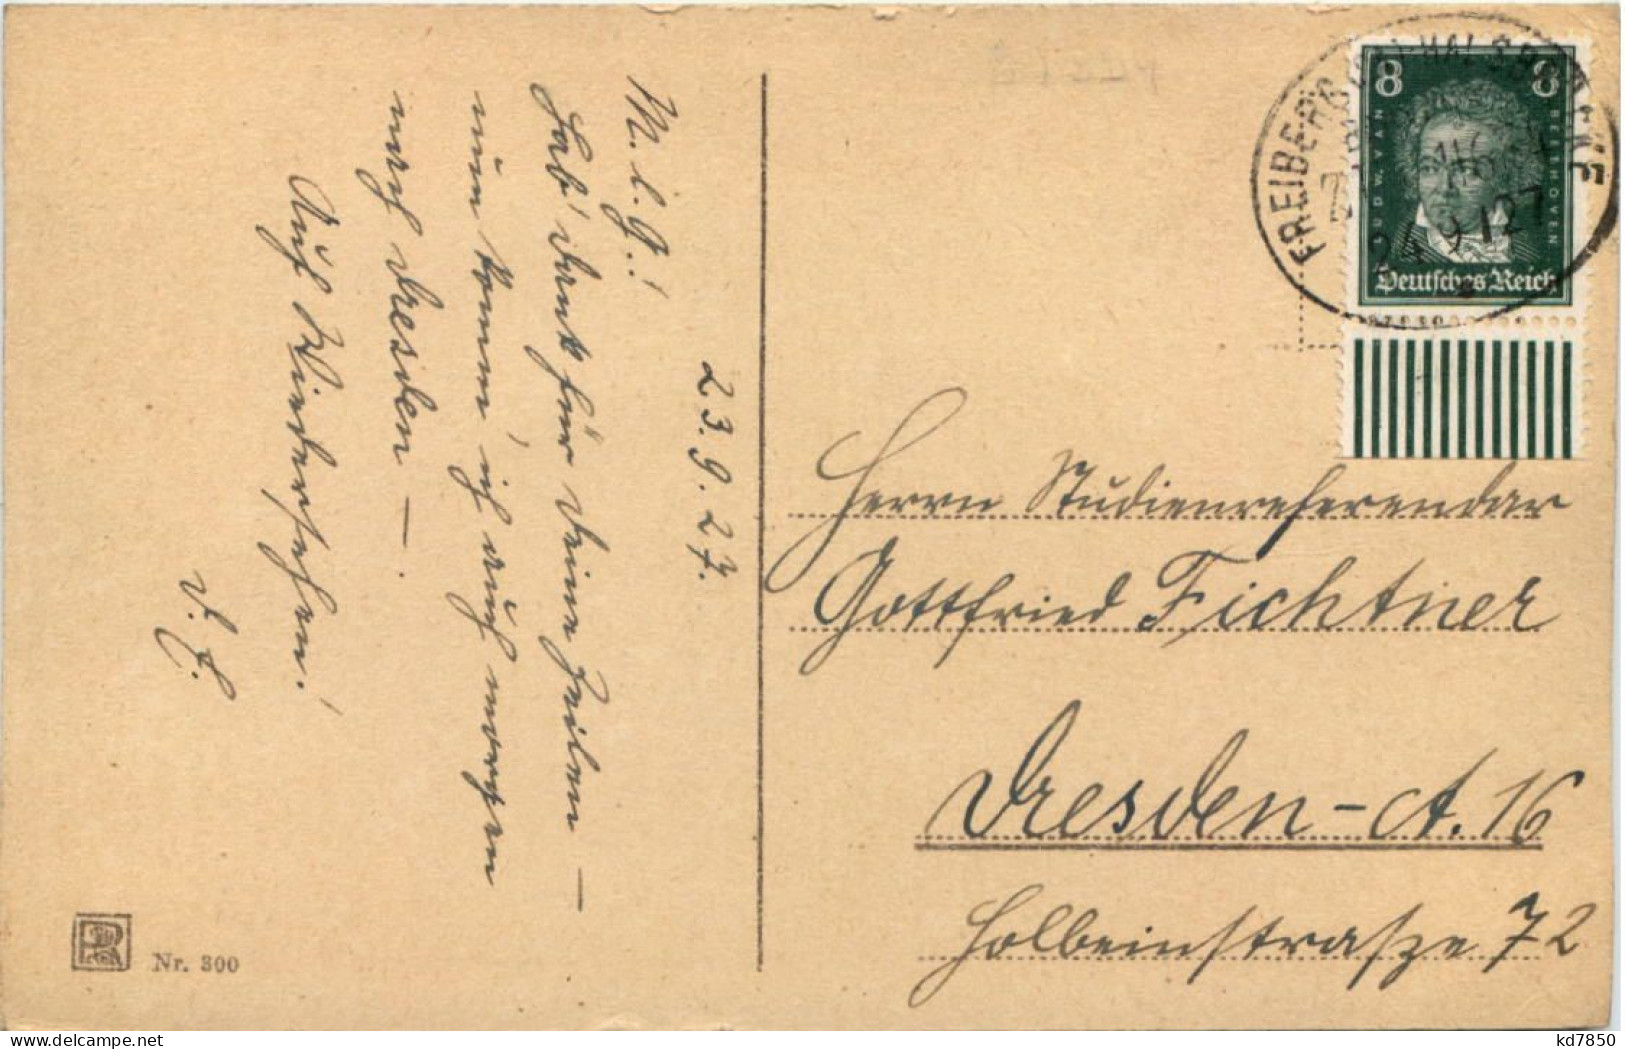 23. 9. 27.
M. l. G.!
Hab' Dank für Deine Zeilen –
nun komm' ich auch morgen
nach Dresden –.
Auf Wiedersehen!
D. H.
Nr. 300
FREIBERG (SA)-HALSBRÜCKE
24 9 27
8 8
LUDW. VAN BEETHOVEN
Deutsches Reich
Herrn Studienreferendar
Gottfried Fichtner
Dresden-A. 16
Holbeinstrasze 72
kd7850